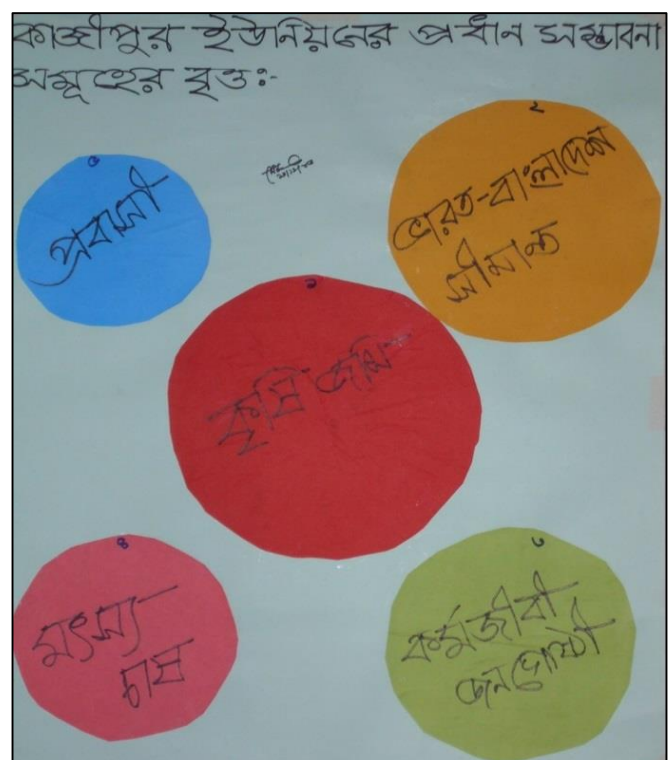 কাজীপুর ইউনিয়নের প্রধান সম্ভাবনা
সমূহের বৃত্তঃ-
৫
প্রবাসী
২
ভারত-বাংলাদেশ
সীমান্ত
১
কৃষি জমি
৪
মৎস্য
চাষ
৩
কর্মজীবী
জনগোষ্ঠী